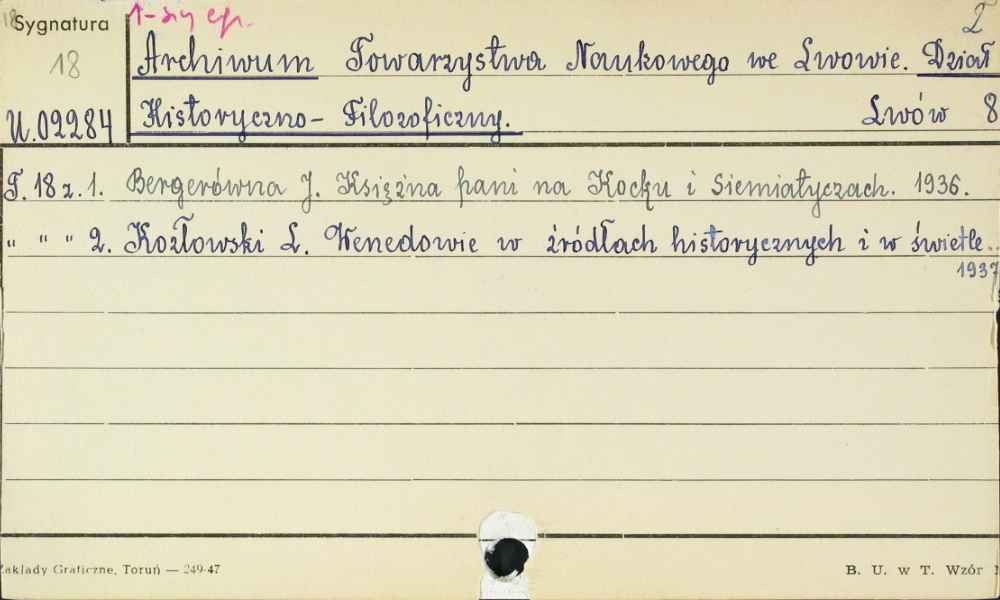 Sygnatura 1-szy egz. 2
18 Archiwum Towarzystwa Naukowego we Lwowie. Dział
U.02284 Historyczno-Filozoficzny. Lwów 8
T. 18 z. 1. Bergerówna J. Księżna pani na Kocku i Siemiatyczach. 1936.
" " " 2. Kozłowski L. Wenedowie w źródłach historycznych i w świetle..
1937
Zakłady Graficzne, Toruń — 249-47 B. U. w T. Wzór